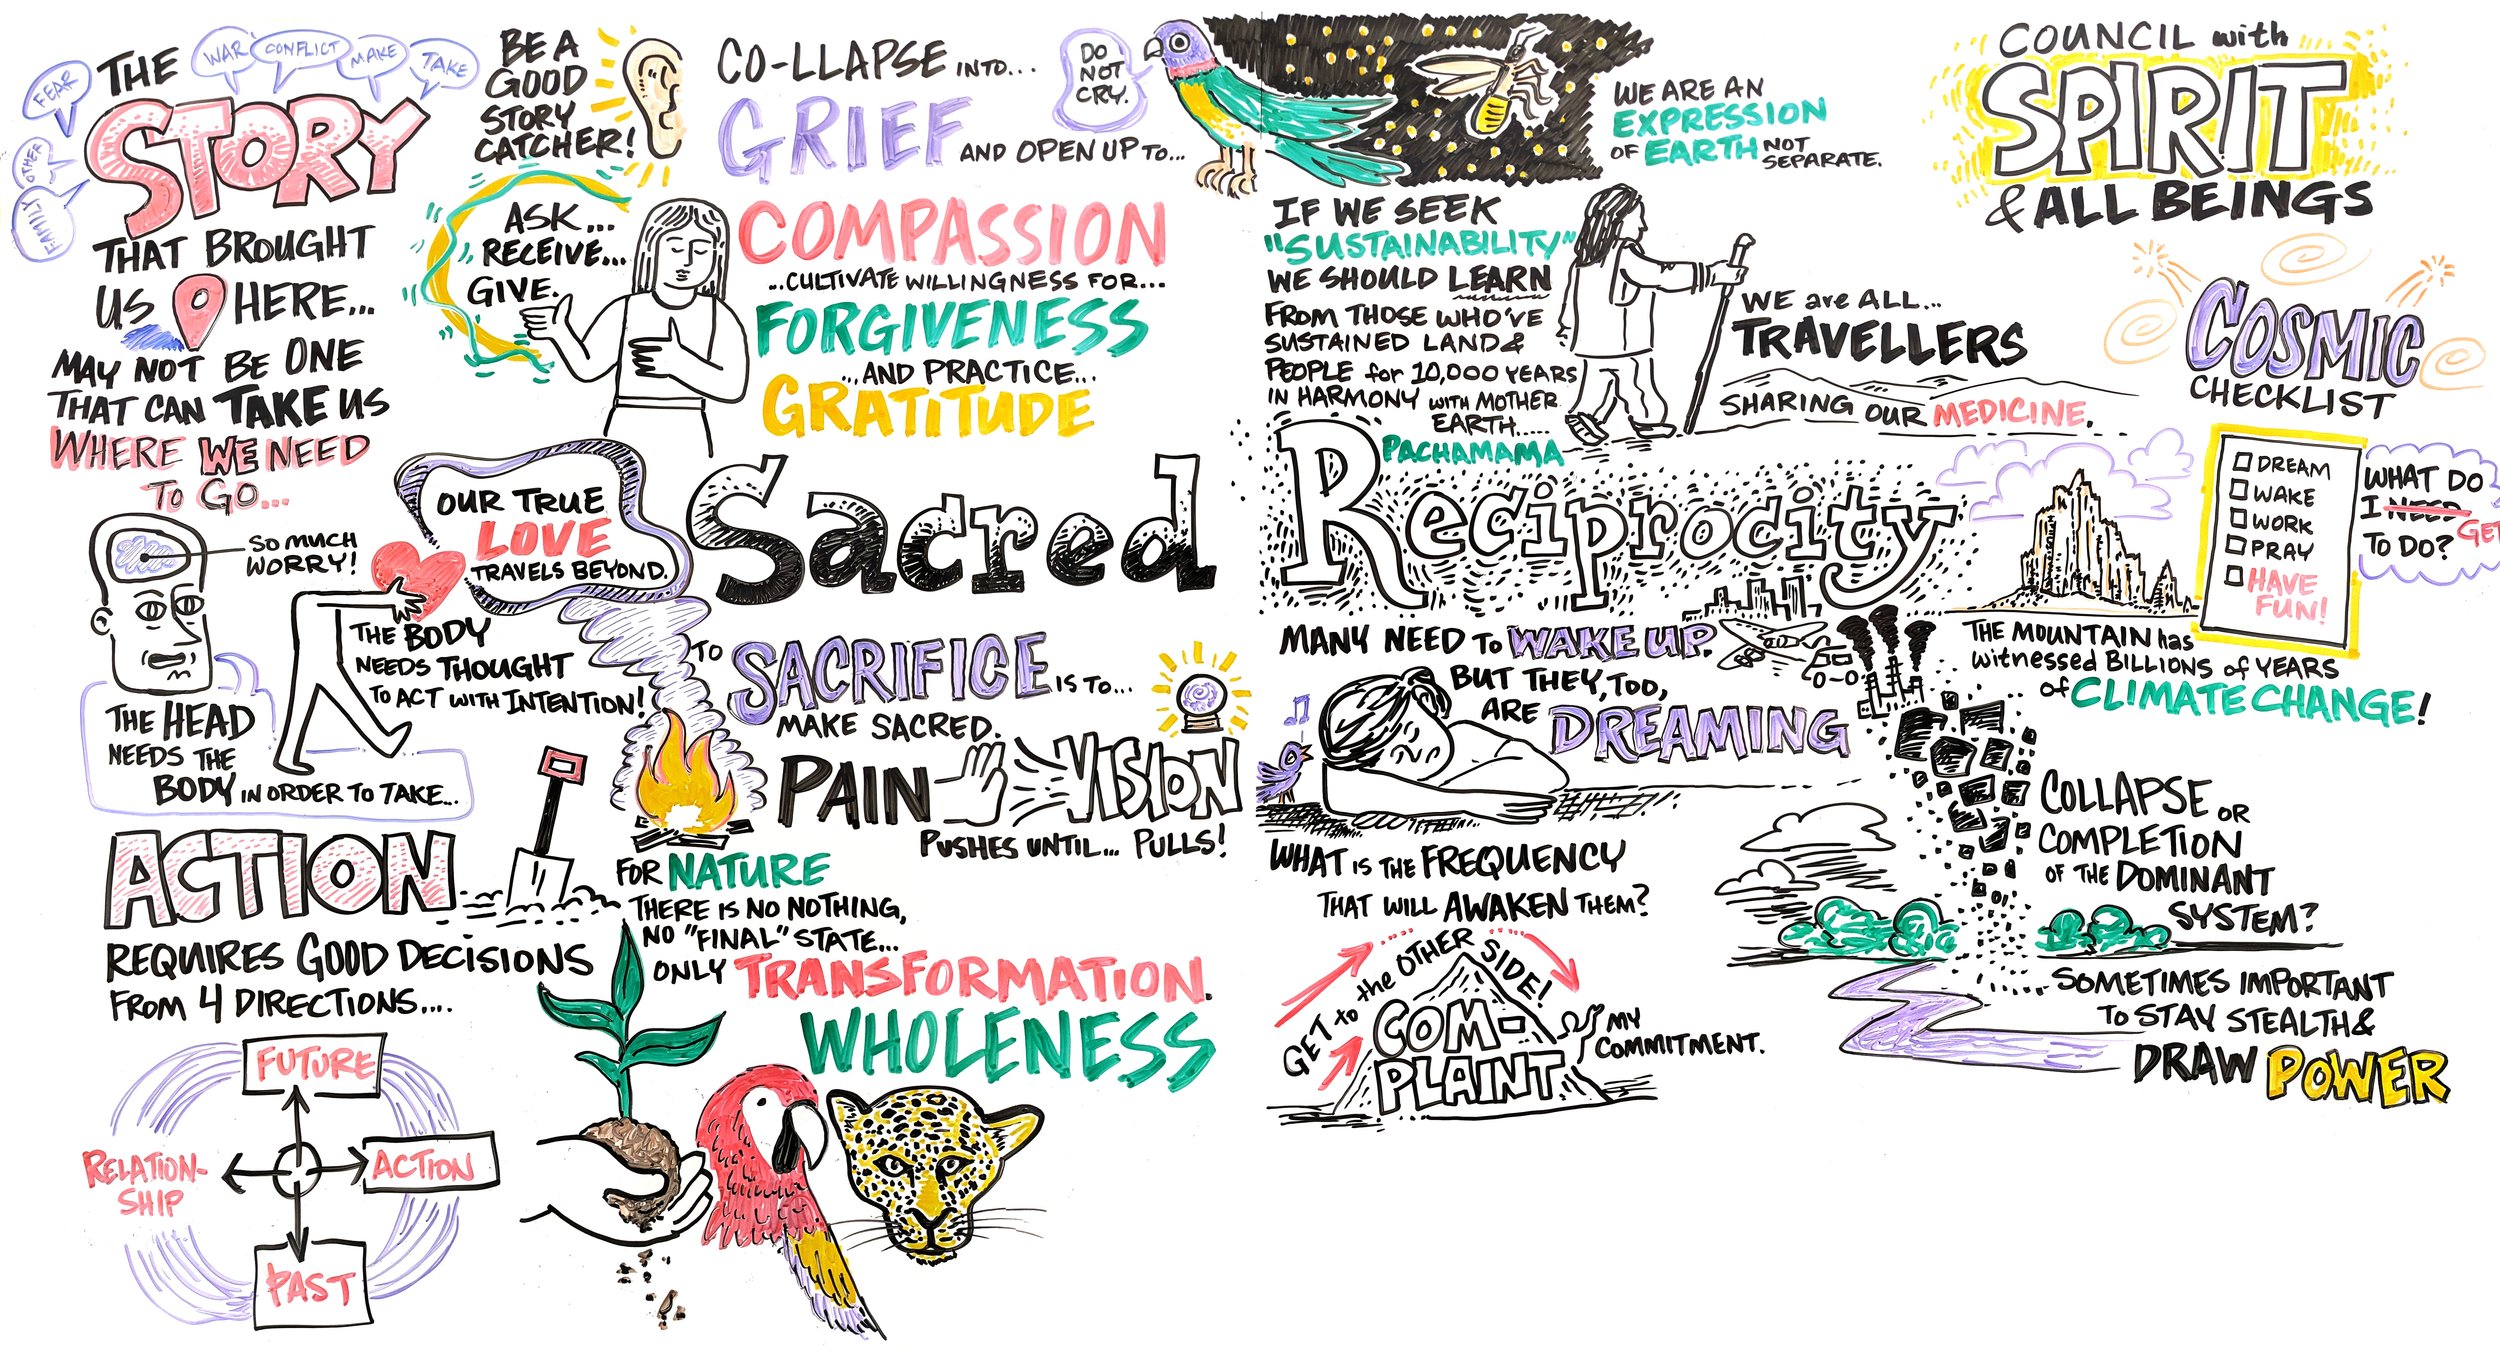 THE
STORY
FAMILY
OTHER
FEAR
WAR
CONFLICT
MAKE
TAKE
THAT BROUGHT
US HERE...
MAY NOT BE ONE
THAT CAN TAKE US
WHERE WE NEED
TO GO...
BE A
GOOD
STORY
CATCHER!
ASK...
RECEIVE...
GIVE.
CO-LLAPSE INTO...
GRIEF AND OPEN UP TO...
COMPASSION
...CULTIVATE WILLINGNESS FOR...
FORGIVENESS
...AND PRACTICE...
GRATITUDE
DO
NOT
CRY.
WE ARE AN
EXPRESSION
OF EARTH NOT
SEPARATE.
COUNCIL with
SPIRIT
& ALL BEINGS
IF WE SEEK
"SUSTAINABILITY"
WE SHOULD LEARN
FROM THOSE WHO'VE
SUSTAINED LAND &
PEOPLE for 10,000 YEARS
IN HARMONY WITH MOTHER
EARTH.....
PACHAMAMA
WE are ALL...
TRAVELLERS
SHARING OUR MEDICINE.
COSMIC
CHECKLIST
DREAM
WAKE
WORK
PRAY
HAVE
FUN!
WHAT DO
I NEED GET
TO DO?
SO MUCH
WORRY!
OUR TRUE
LOVE
TRAVELS BEYOND.
Sacred Reciprocity
THE HEAD
NEEDS THE
BODY IN ORDER TO TAKE...
THE BODY
NEEDS THOUGHT
TO ACT WITH INTENTION!
ACTION
REQUIRES GOOD DECISIONS
FROM 4 DIRECTIONS....
FUTURE
RELATION-
SHIP
ACTION
PAST
TO SACRIFICE IS TO...
MAKE SACRED.
PAIN VISION
PUSHES UNTIL... PULLS!
FOR NATURE
THERE IS NO NOTHING,
NO "FINAL" STATE...
ONLY TRANSFORMATION.
WHOLENESS
MANY NEED TO WAKE UP.
BUT THEY, TOO,
ARE DREAMING
WHAT IS THE FREQUENCY
THAT WILL AWAKEN THEM?
GET to the OTHER SIDE!
COM-
PLAINT
MY
COMMITMENT.
THE MOUNTAIN has
witnessed BILLIONS of YEARS
of CLIMATE CHANGE!
COLLAPSE OR
COMPLETION
OF THE DOMINANT
SYSTEM?
SOMETIMES IMPORTANT
TO STAY STEALTH &
DRAW POWER